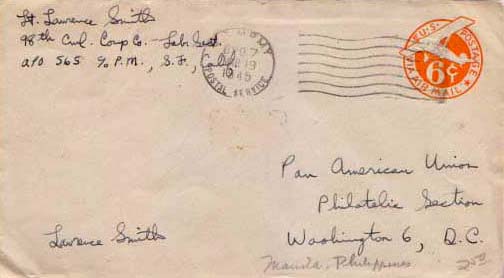 Lt. Lawrence Smith
98th Cml. Comp Co. - Lab. Sect.
APO 565 % P.M., S.F., Calif.
U.S. ARMY
1945
POSTAL SERVICE
U.S. POSTAGE
6¢
VIA AIR MAIL
Pan American Union
Philatelic Section
Washington 6, D.C.
Lawrence Smith
Manila, Philippines